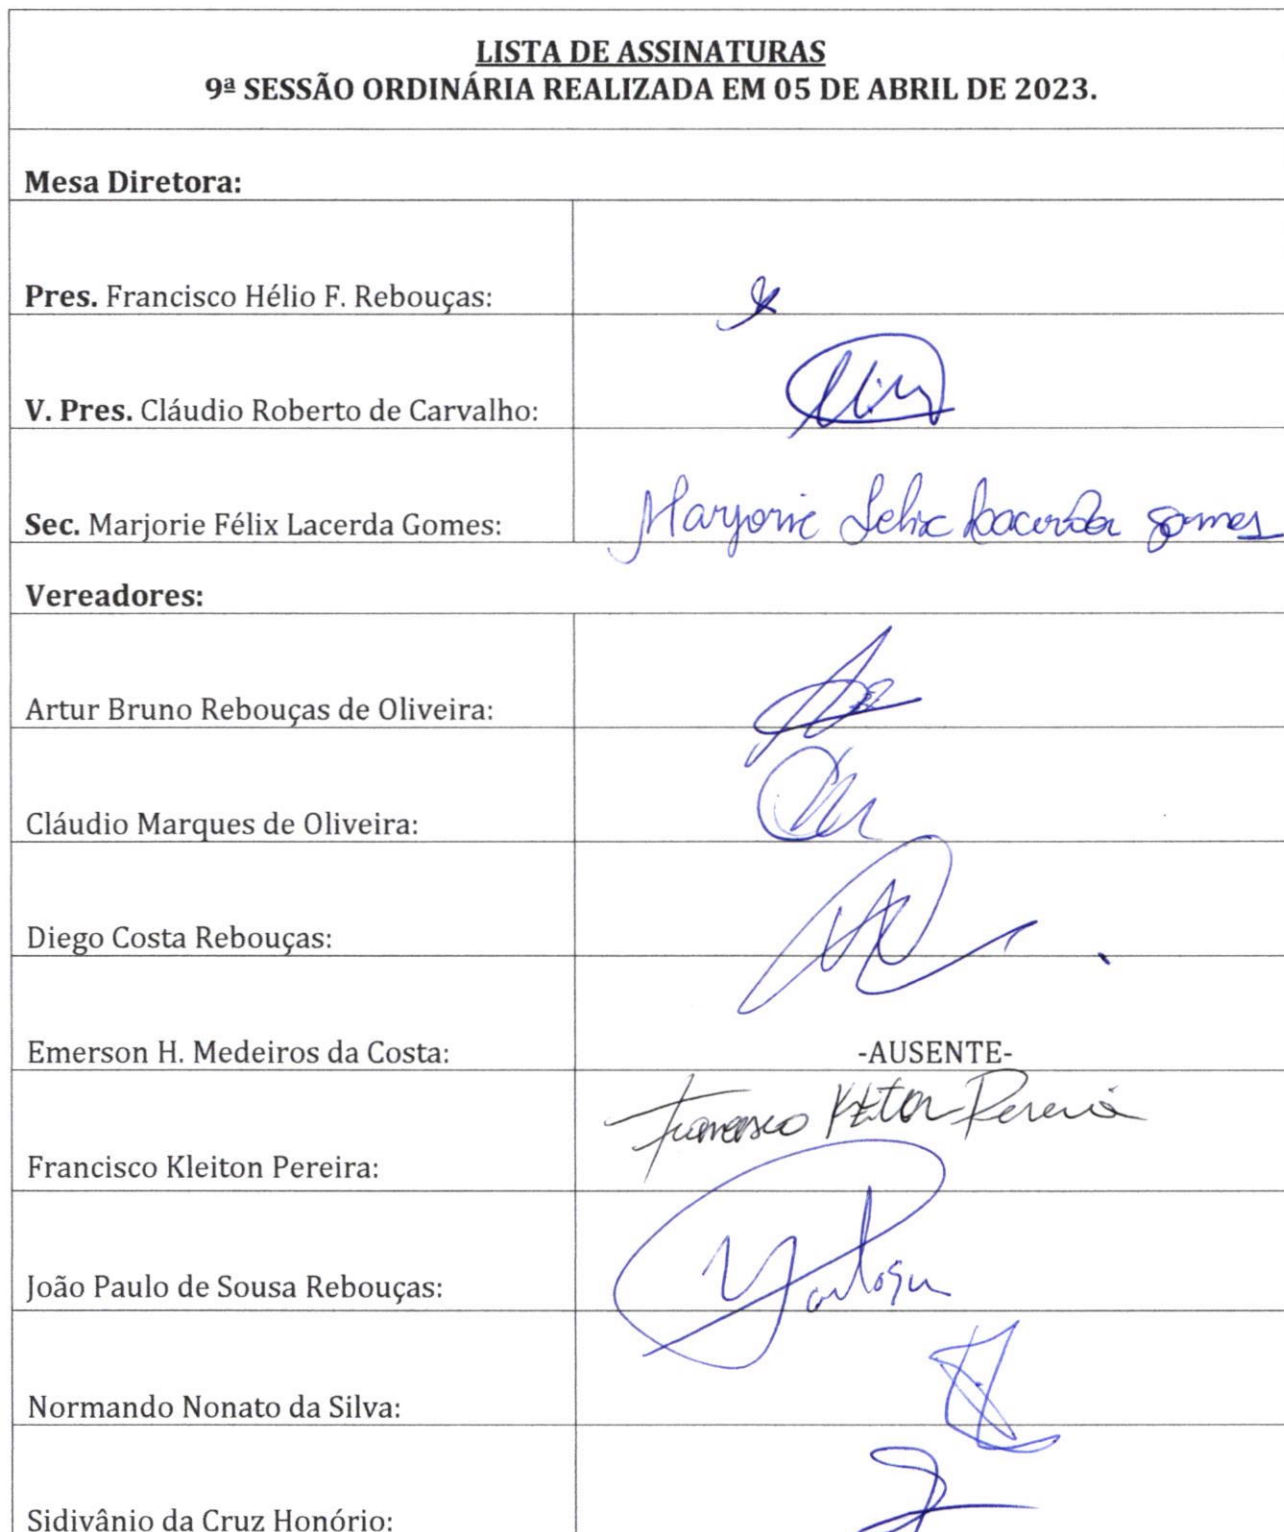 LISTA DE ASSINATURAS
9ª SESSÃO ORDINÁRIA REALIZADA EM 05 DE ABRIL DE 2023.
Mesa Diretora:
Pres. Francisco Hélio F. Rebouças:
V. Pres. Cláudio Roberto de Carvalho:
Sec. Marjorie Félix Lacerda Gomes: Marjorie Felix Lacerda Gomes
Vereadores:
Artur Bruno Rebouças de Oliveira:
Cláudio Marques de Oliveira:
Diego Costa Rebouças:
Emerson H. Medeiros da Costa: -AUSENTE-
Francisco Kleiton Pereira: Francisco Kleiton Pereira
João Paulo de Sousa Rebouças:
Normando Nonato da Silva:
Sidivânio da Cruz Honório: